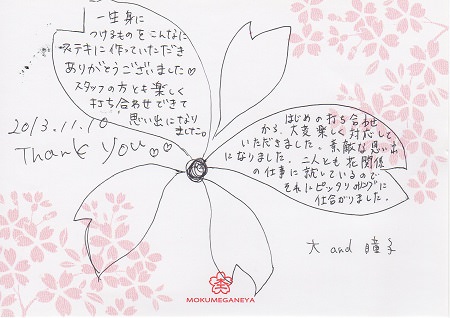 一生身に
つけるものをこんなに
ステキに作っていただき
ありがとうございました♡
スタッフの方とも楽しく
打ち合わせできて
思い出になり
ました。
2013.11.10
Thank you♡♡
はじめの打ち合わせ
から、大変楽しく対応して
いただきました。素敵な思い出
になりました。二人とも花関係
の仕事に就しているので
それにピッタリのリングに
仕合がりました。
大 and 瞳子
MOKUMEGANEYA